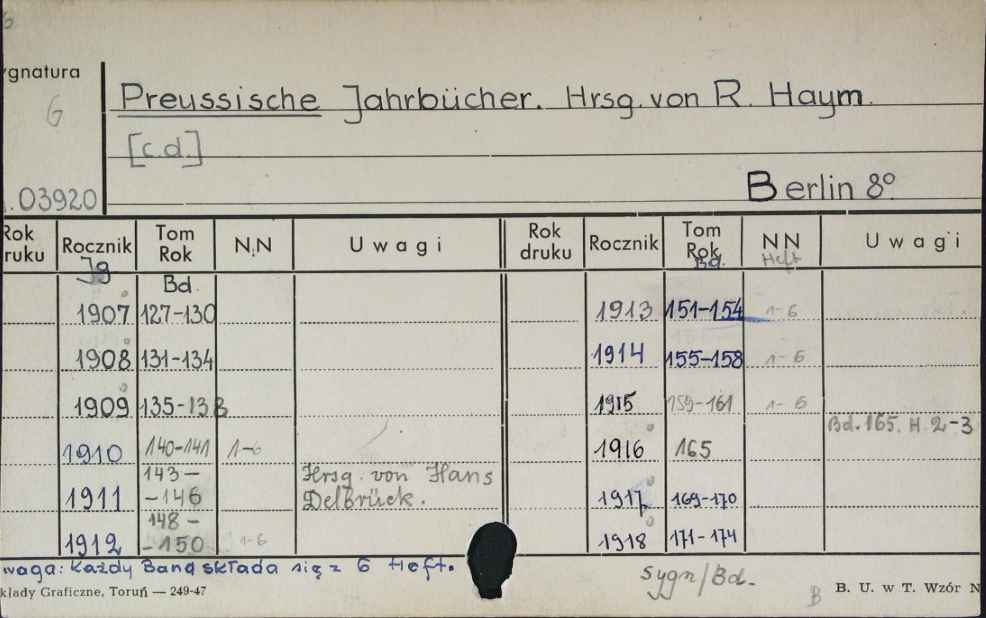 6
ygnatura
G
Preussische Jahrbücher. Hrsg. von R. Haym.
[c.d.]
.03920
Berlin 8º
Rok ruku Rocznik Tom Rok N.N Uwagi Rok druku Rocznik Tom Rok NN Uwagi
Jg Bd. Bd. Heft
1907 127-130 1913 151-154 1-6
1908 131-134 1914 155-158 1-6
1909 135-138 1915 159-161 1-6
Bd. 165. H. 2-3
1910 140-141 1-6 1916 165
1911 143-146 Hrsg. von Hans Delbrück. 1917 169-170
1912 148-150 1-6 1918 171-174
waga: Każdy Band składa się z 6 Heft.
Sygn/Bd.
kłady Graficzne, Toruń — 249-47
B B. U. w T. Wzór N